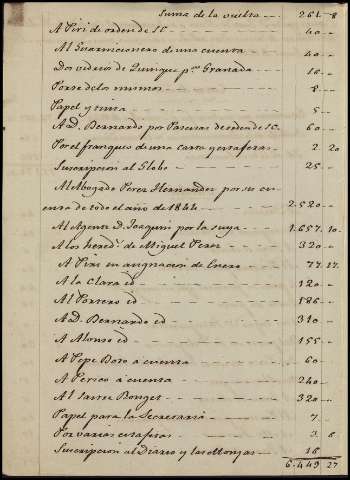 Suma de la vuelta -- 261. 8
A Piri de orden de S.E. --- 40 --
Al Guarnicionero de una cuenta --- 40 --
Dos vidrios de Quinque pª Granada -- 16 --
Porte de los mismos --- 8 --
Papel y tinta --- 5 --
A D. Bernardo por Pascuas de orden de S.E. - 60 --
Por el franqueo de una carta y estafetas -- 2. 20
Suscripcion al Globo --- 25 --
Al Abogado Perez Hernandez por su cu-
enta de todo el año de 1844 --- 2.520 --
Al Agente D. Joaquin por la suya --- 1.657. 10.
A los hered.s de Miguel Perez --- 320 --
A Piri su asignacion de Enero --- 77. 17.
A la Clara id --- 120 --
Al Portero id --- 186 --
A D. Bernardo id --- 310 --
A Alonso id --- 155 --
A Pepe Bozo á cuenta --- 60 --
A Perico á cuenta --- 240 --
Al Sastre Borges --- 320 --
Papel para la Secretaria --- 7
Por varias estafetas --- 3. 6
Suscripcion al Diario y las Monjas --- 16
6.449 27